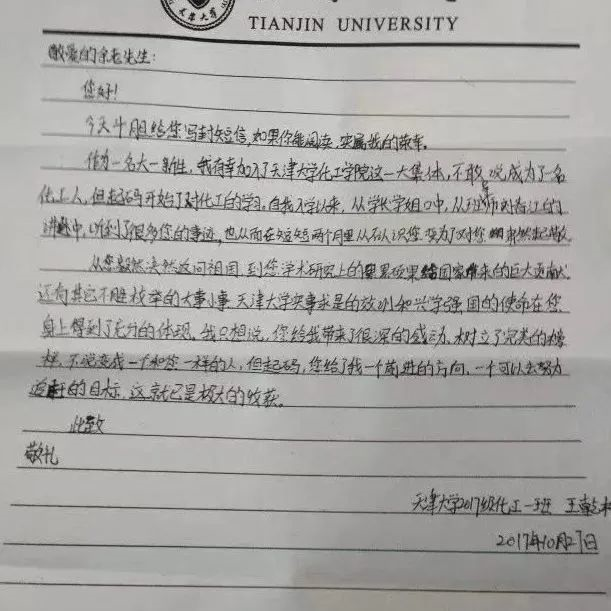 TIANJIN UNIVERSITY
敬爱的余老先生:
您好!
今天斗胆给您写封短信,如果你能阅读,实属我的荣幸。
作为一名大一新生,我有幸加入了天津大学化工学院这一大集体,不敢说成为了一名
化工人,但起码开始了对化工的学习。自我入学以来,从学长学姐口中,从冯师刘春江的
讲中,听到了很多您的事迹,也从而在短短两个月里从不认识您变为了对您肃然起敬。
从您毅然决然返回祖国,到您学术研究上的累累硕果给国家带来的巨大贡献,
还有其它不胜枚举的大事小事,天津大学实事求是的校训和兴学强国的使命在您
身上得到了充分的体现。我只想说,您给我带来了很深的感动,树立了完美的榜
样,不说变成一个和您一样的人,但起码,您给了我一个前进的方向,一个可以去努力
追赶的目标,这就已是极大的收获。
此致
敬礼
天津大学2017级化工一班 王乾
2017年10月27日